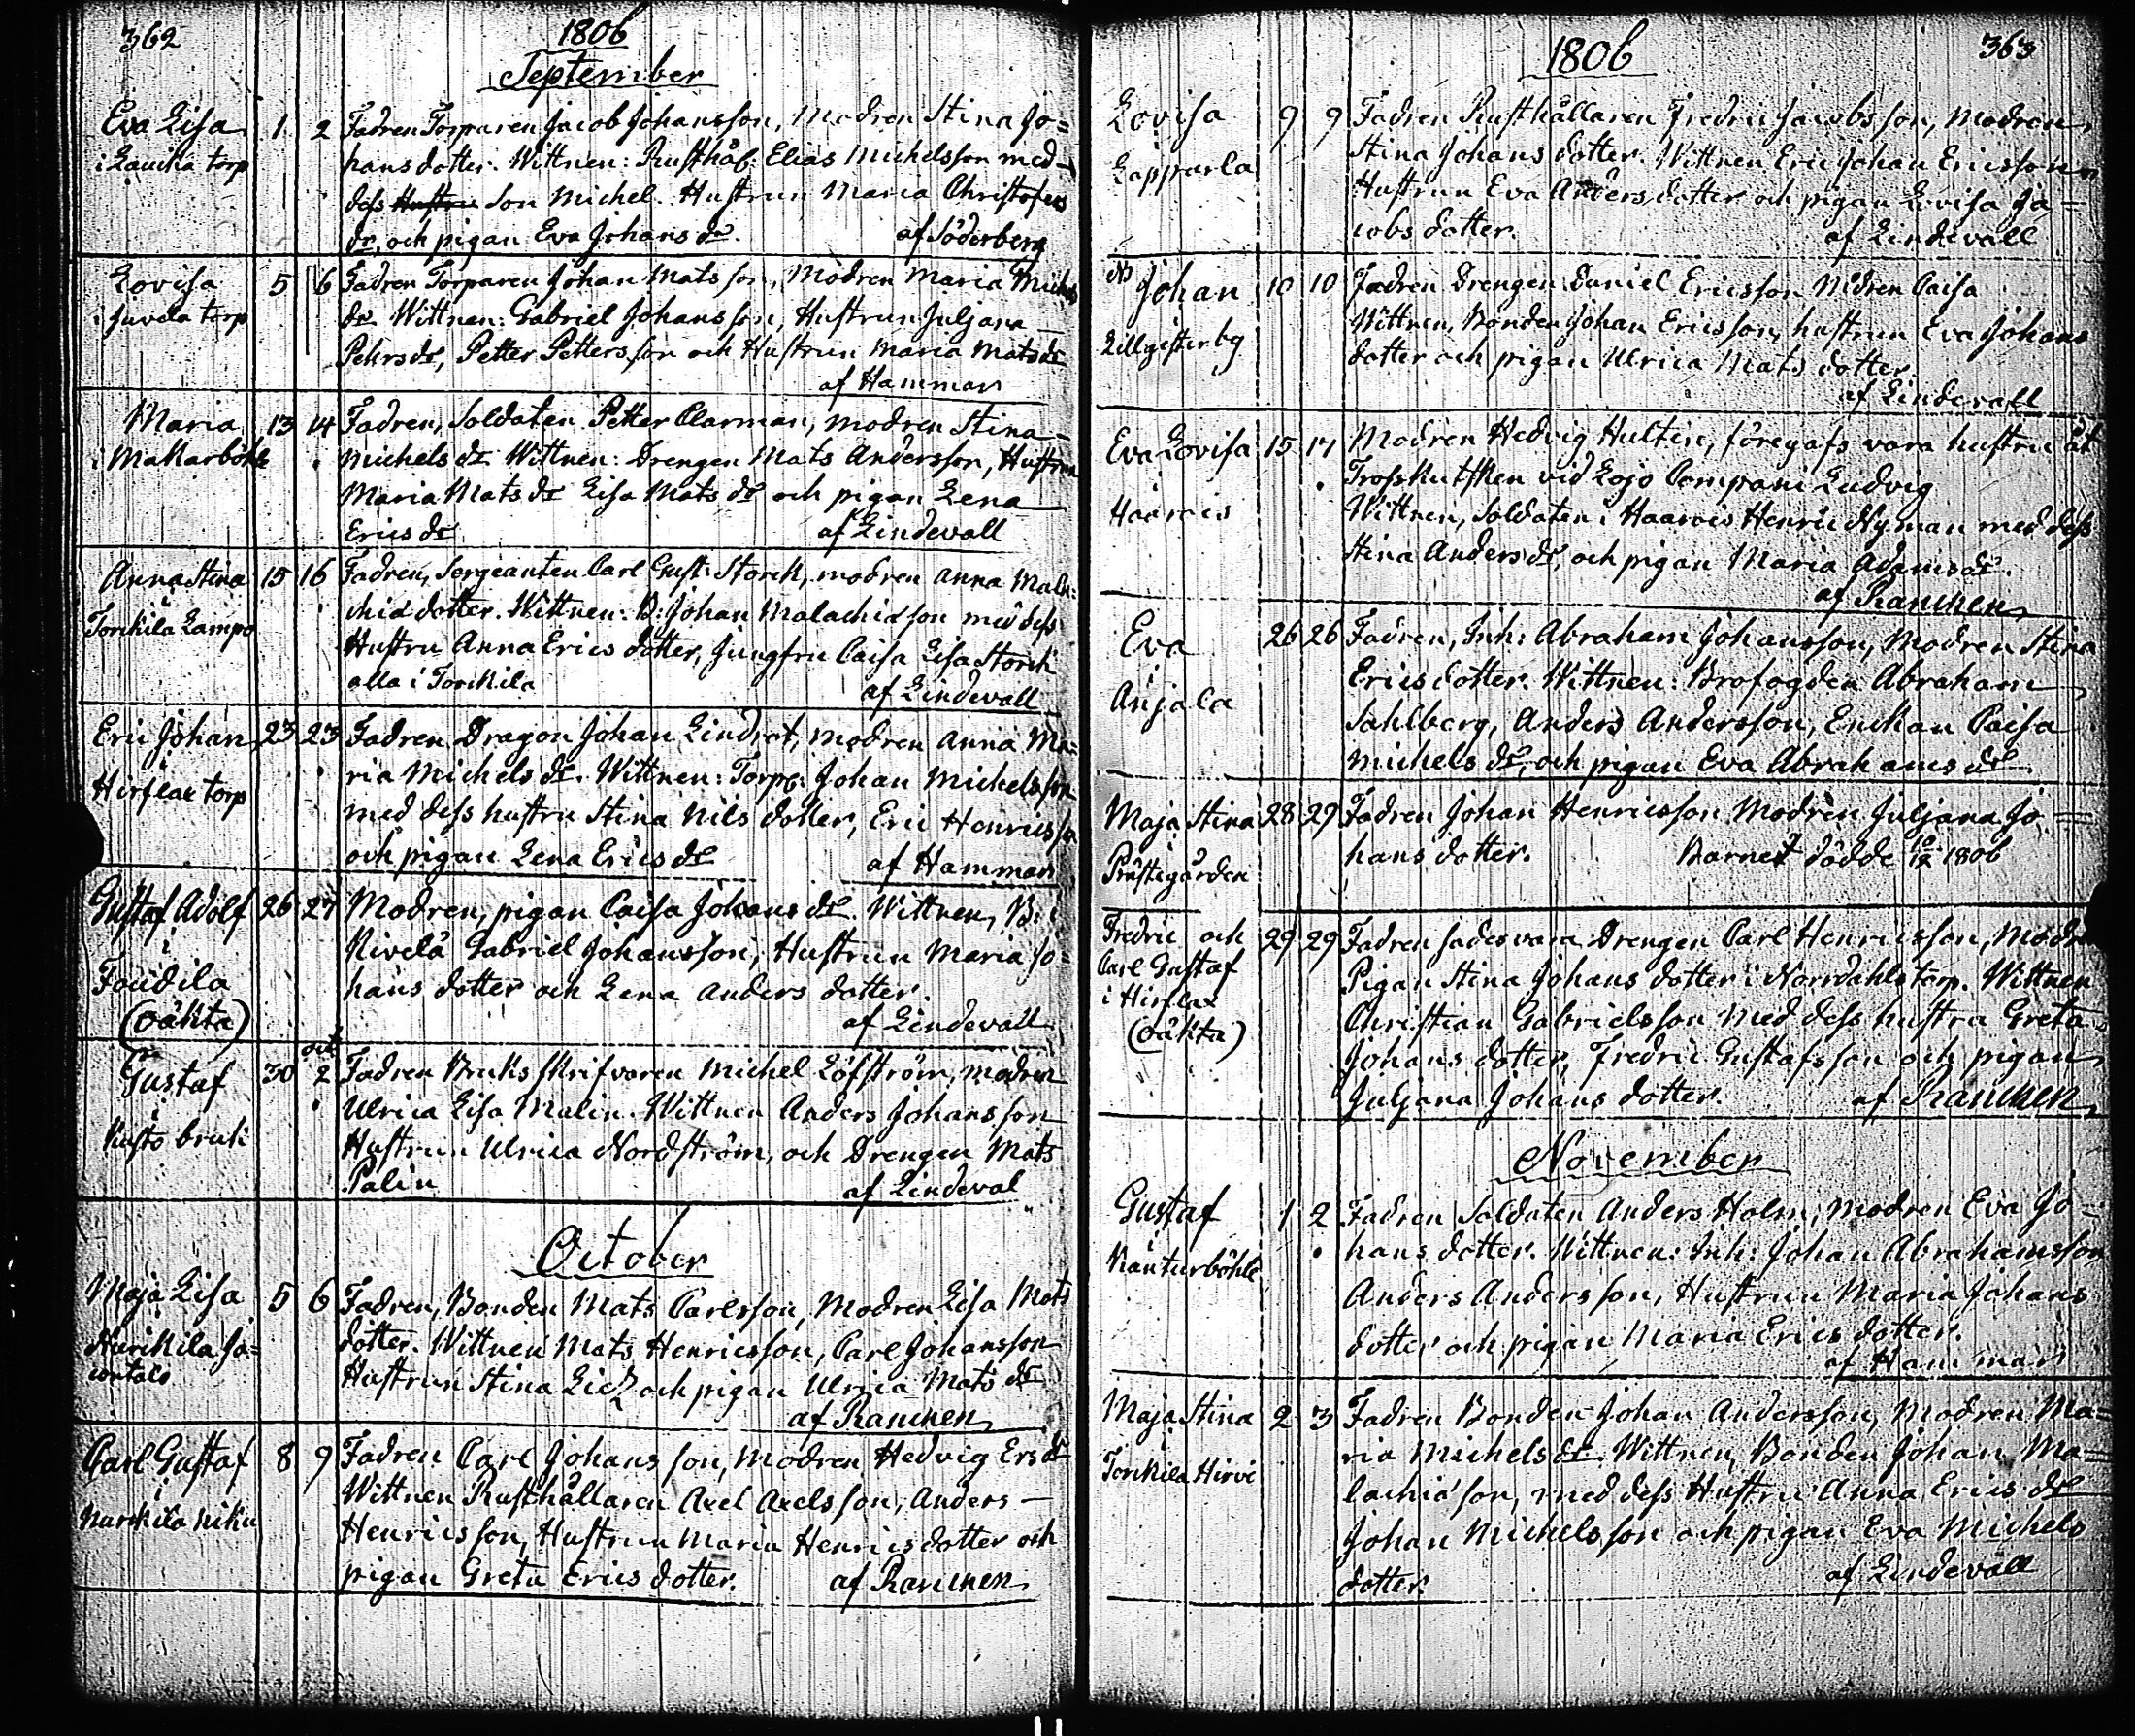 362
1806
September
Eva Lisa 1. 2 Fadren Torparen Jacob Johansson, Modren Stina Jo=
i Laukia torp hans dotter. Wittnen: Rusthål: Elias Michelsson med
dess Hustru son Michel. Hustrun Maria Christofers
dr, och pigan Eva Johans dr. af Söderberg
Lovisa 5 6 Fadren Torparen Johan Matsson, Modren Maria Michels
i Juvela torp dr Wittnen: Gabriel Johansson, Hustrun Juljana
Pehrs dr, Petter Pettersson och Hustrun Maria Mats dr
af Hammar
Maria 13 14 Fadren, Soldaten Petter Clarman, modren Stina
i Makarböhle Michels dr Wittnen: Drengen Mats Andersson, Hustrun
Maria Mats dr Lisa Mats dr och pigan Lena
Erics dr af Lindevall
Anna Stina 15 16 Fadren, Sergeanten Carl Gust: Storck, modren Anna Mala=
i
Torckila Lampo chiæ dotter. Wittnen: B: Johan Malachiæson med dess
Hustru Anna Erics dotter, Jungfru Caisa Lisa Storck
alla i Torckila af Lindevall
Eric Johan 23 23 Fadren Dragon Johan Lindrot, modren Anna Ma=
i
Hirflax torp ria Michels dr. Wittnen: Torp: Johan Michelsson
med dess hustru Stina Nils dotter, Eric Henricsson
och pigan Lena Erics dr af Hammar
Gustaf Adolf 26 27 Modren, pigan Caisa Johans dr. Wittnen, B:
i
Nivelä Gabriel Johansson, Hustrun Maria Jo=
(oäkta) hans dotter och Lena Anders dotter.
af Lindevall
oct
Gustaf 30 2 Fadren Bruks skrifvaren Michel Löfström, modren
i
Ulrica Lisa Malin. Wittnen Anders Johansson
Kusto bruk Hustrun Ulrica Nordström, och Drengen Mats
Palin af Lindeval
October
Maja Lisa 5 6 Fadren, Bonden Mats Carlsson, Modren Lisa Mats
dotter. Wittnen Mats Henricsson, Carl Johansson
Hustrun Stina och pigan Ulrica Mats dr
af Rancken
Carl Gustaf 8 9 Fadren Carl Johansson, Modren Hedvig Ers dr
i
Wittnen Rusthållaren Axel Axelsson, Anders
Henricsson, Hustrun Maria Henrics dotter och
pigan Greta Erics dotter. af Rancken
1806
363
Lovisa 9 9 Fadren Rusthållaren Fredric Jacobsson, Modren
i
Lapparla Stina Johans dotter. Wittnen Eric Johan Ericsson
Hustrun Eva Anders dotter och pigan Lovisa Ja=
cobs dotter. af Lindevall
Johan 10 10 Fadren Drengen Daniel Ericsson Modren Caisa
Wittnen, Bonden Johan Ericsson, hustrun Eva Johans
Lillgisterby dotter och pigan Ulrica Mats dotter.
af Lindevall
Eva Lovisa 15 17 Modren Hedvig Hultin, föregafs vara hustru åt
Trosskutsken vid Lojo Compani Ludvig
Wittnen, Soldaten i Haarois Henric Nyman med dess
Haarois Stina Anders dr, och pigan Maria Adams dr.
af Rancken
Eva 26 26 Fadren, Inh: Abraham Johansson, Modren Stina
Erics dotter. Wittnen: Brofogden Abraham
Anjala Sahlberg, Anders Andersson, Enckan Caisa
Michels dr, och pigan Eva Abrahams dr
Maja Stina 28 29 Fadren Johan Henricsson Modren Juljana Jo=
Prästegården hans dotter. Barnet dödde 10/12 1806
Fredric och 29 29 Fadren sades vara Drengen Carl Henricsson, Modren
Carl Gustaf Pigan Stina Johans dotter i Norrdahls torp. Wittnen
i Hirflax Christian Gabrielsson med dess hustru Greta
(oäkta) Johans dotter, Fredric Gustafsson och pigan
Juljana Johans dotter. af Rancken
November
Gustaf 1 2 Fadren Soldaten Anders Holm, Modren Eva Jo=
i
Kanturböhle hans dotter. Wittnen: Inh: Johan Abrahamsson
Anders Andersson, Hustrun Maria Johans
dotter och pigan Maria Erics dotter.
af Hammar
Maja Stina 2 3 Fadren Bonden Johan Andersson, Modren Ma=
i
Torckila Hirvi ria Michels dr. Wittnen, Bonden Johan Ma=
lachiæson, med dess Hustru Anna Erics dr
Johan Michelsson och pigan Eva Michels
dotter. af Lindevall